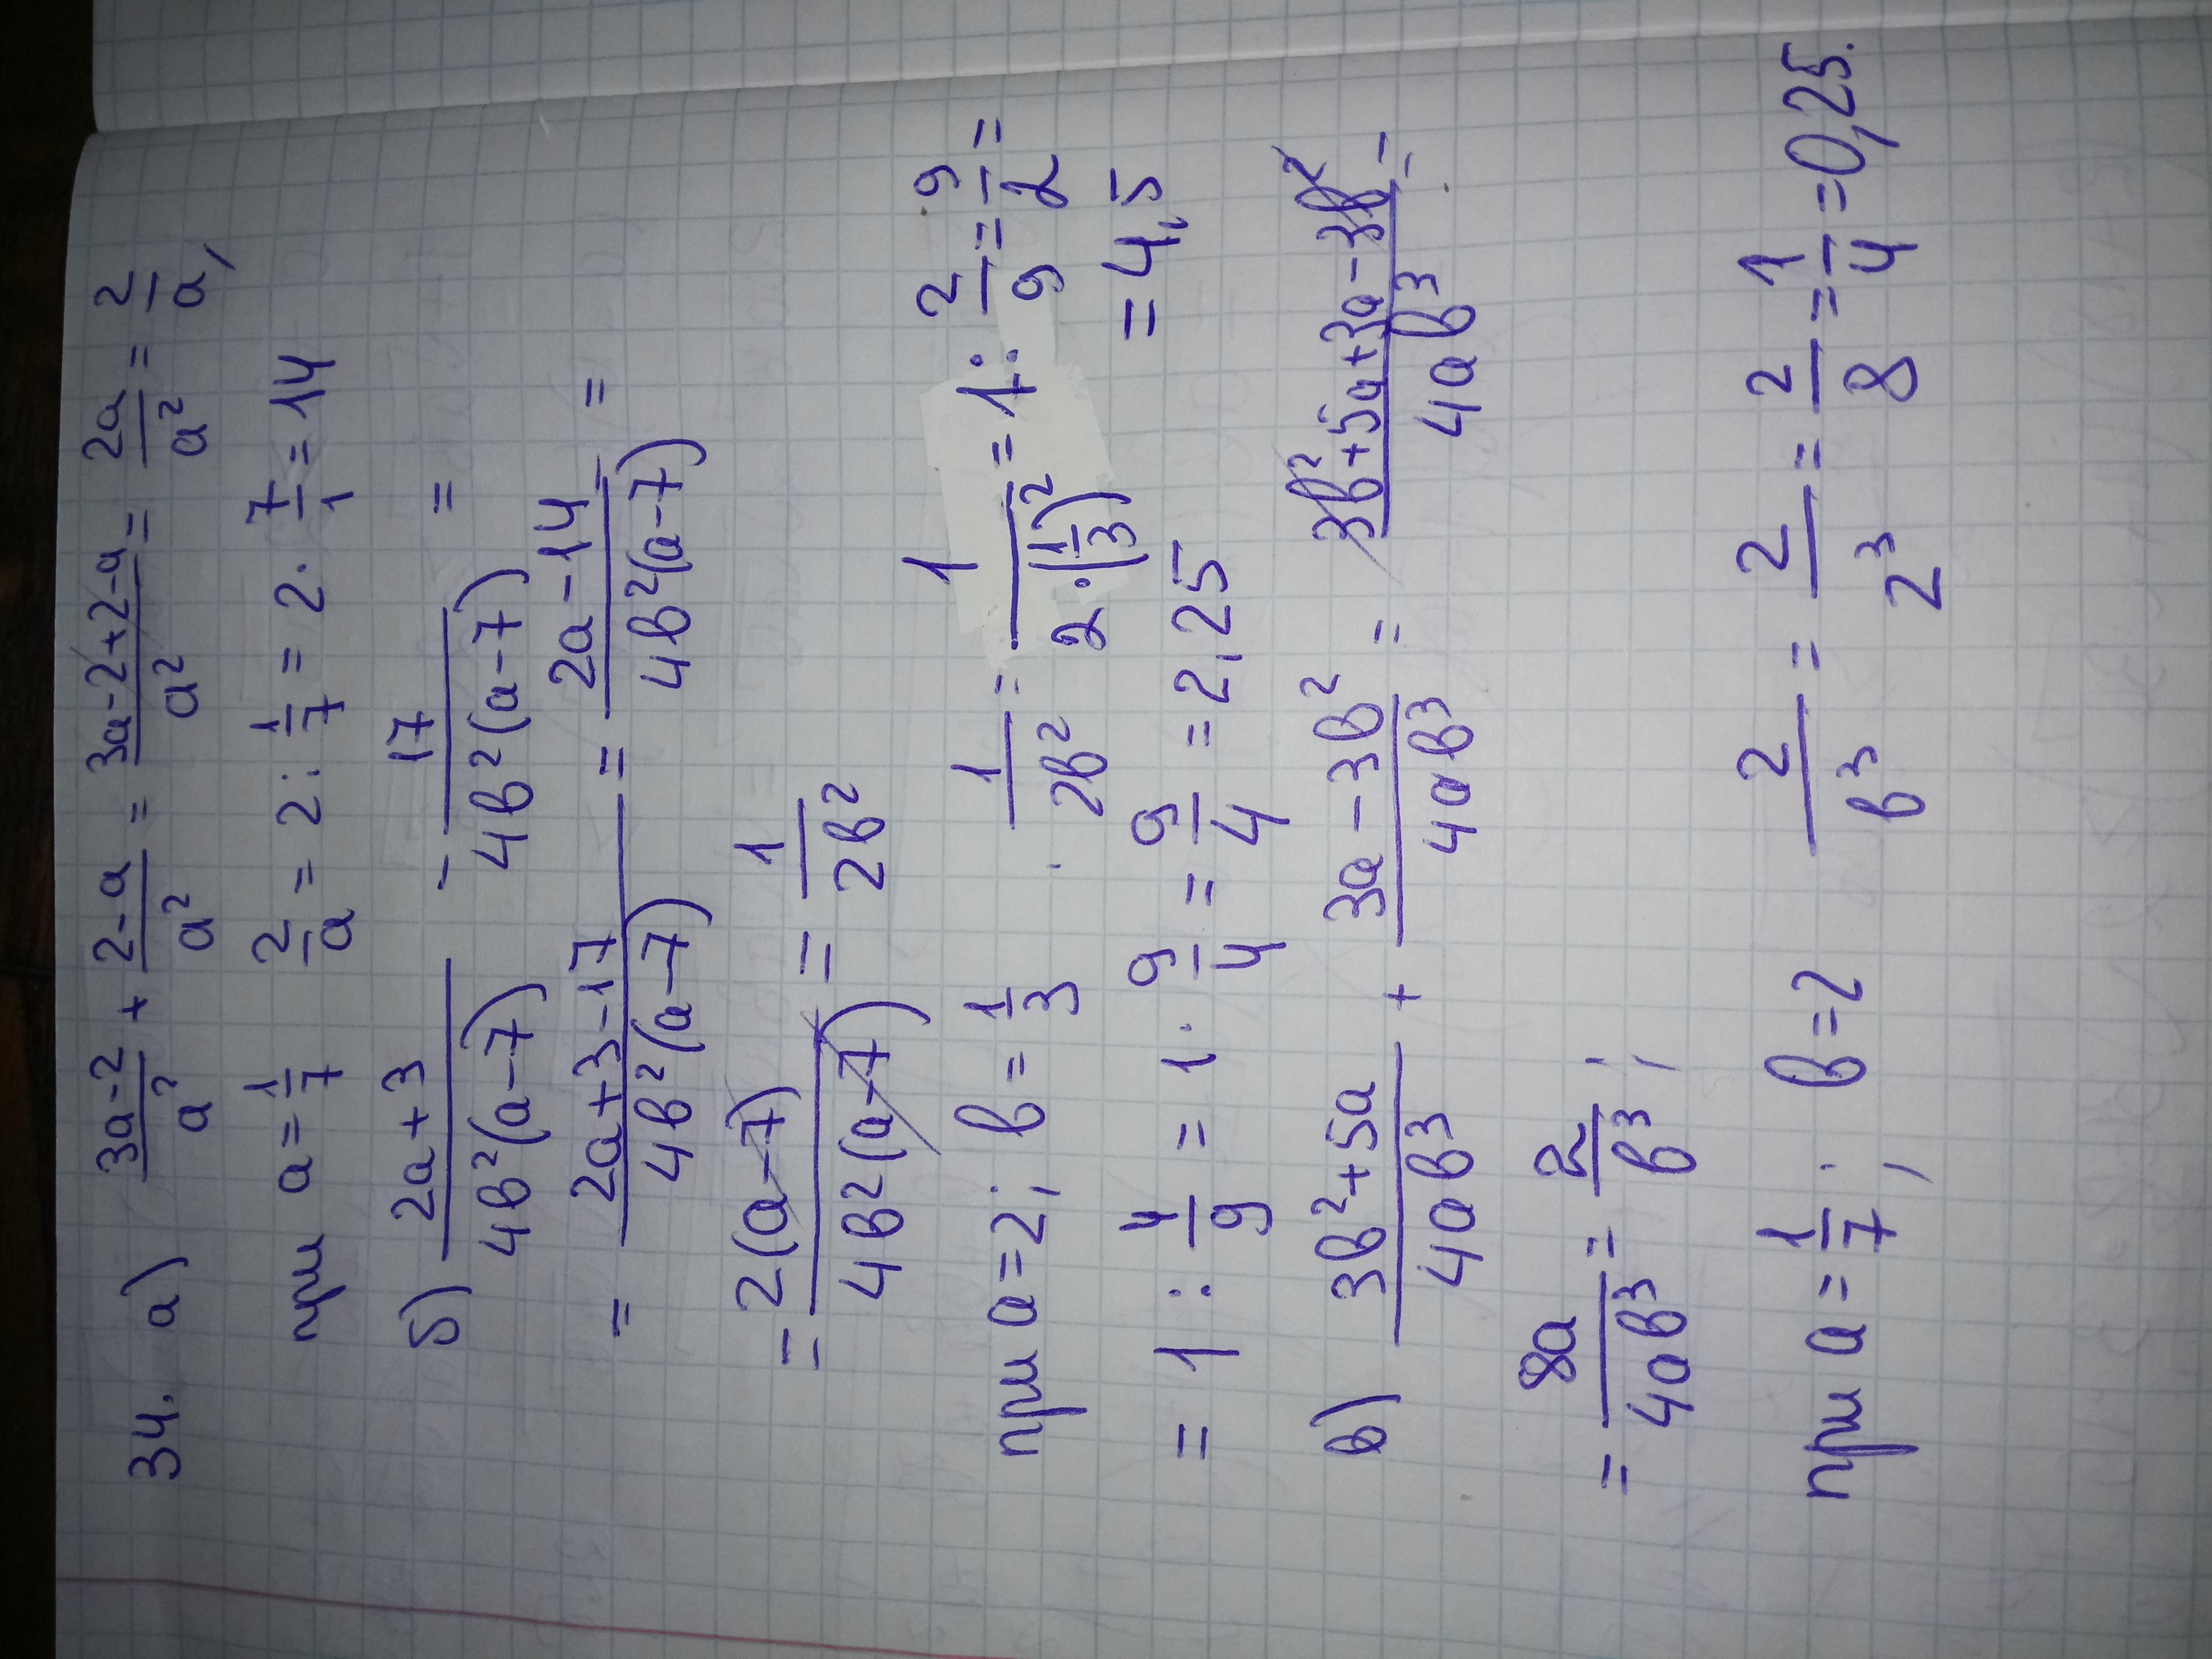 34. а) (3a-2)/a² + (2-a)/a² = (3a-2+2-a)/a² = 2a/a² = 2/a,
при a = 1/7 2/a = 2 : 1/7 = 2 · 7/1 = 14
б) (2a+3)/(4в²(a-7)) - 17/(4в²(a-7)) =
= (2a+3-17)/(4в²(a-7)) = (2a-14)/(4в²(a-7)) =
= 2(a-7)/(4в²(a-7)) = 1/(2в²)
при a=2; в = 1/3 1/(2в²) = 1/(2·(1/3)²) = 1 : 2/9 = 9/2 =
= 4,5
= 1 : 4/9 = 1 · 9/4 = 9/4 = 2,25
в) (3в²+5a)/(4aв³) + (3a-3в²)/(4aв³) = (3в²+5a+3a-3в²)/(4aв³) =
= 8a/(4aв³) = 2/в³ ;
при a = 1/7 ; в=2 2/в³ = 2/2³ = 2/8 = 1/4 = 0,25.